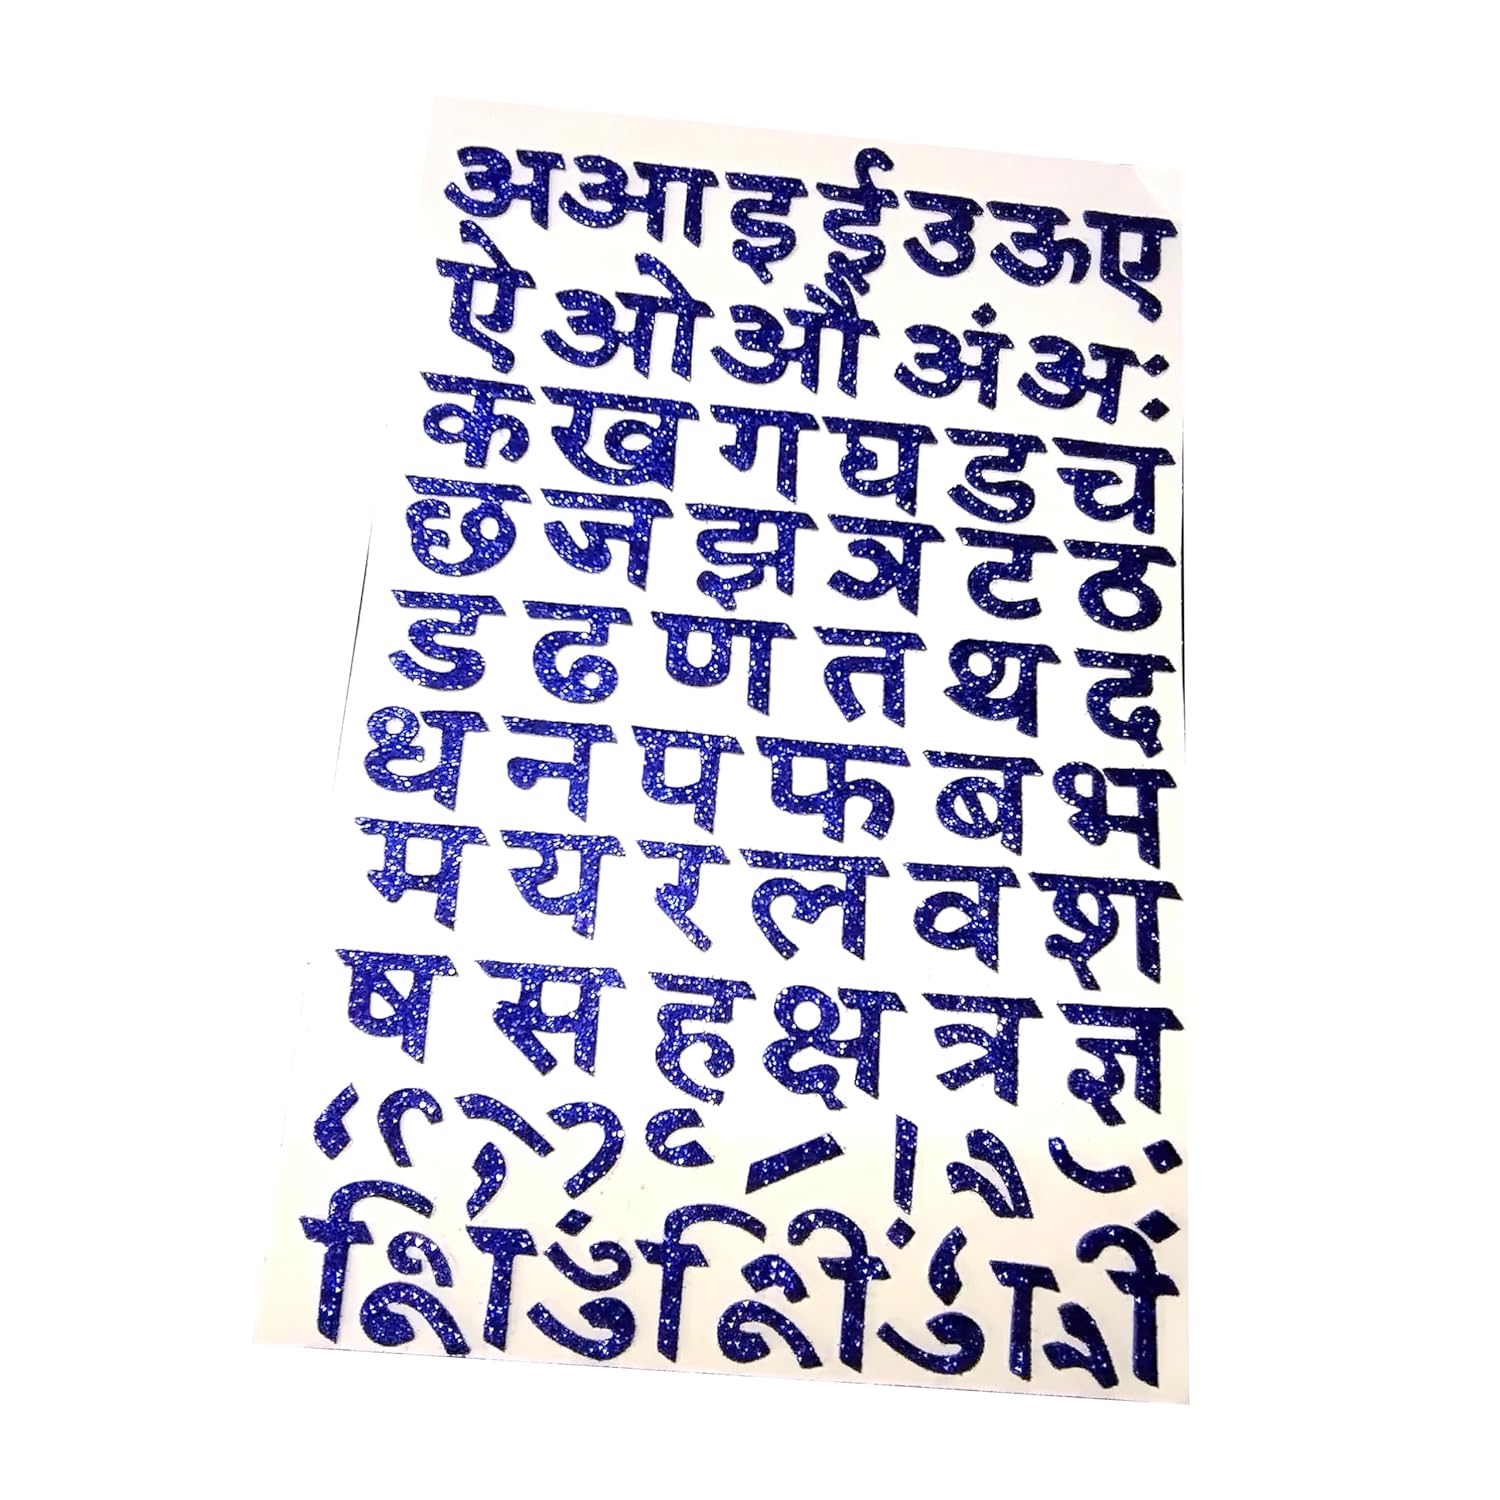 अ आ इ ई उ ऊ ए
ऐ ओ औ अं अः
क ख ग घ ड च
छ ज झ त्र ट ठ
ड ढ ण त थ द
ध न प फ ब भ
म य र ल व श
ष स ह क्ष त्र ज्ञ